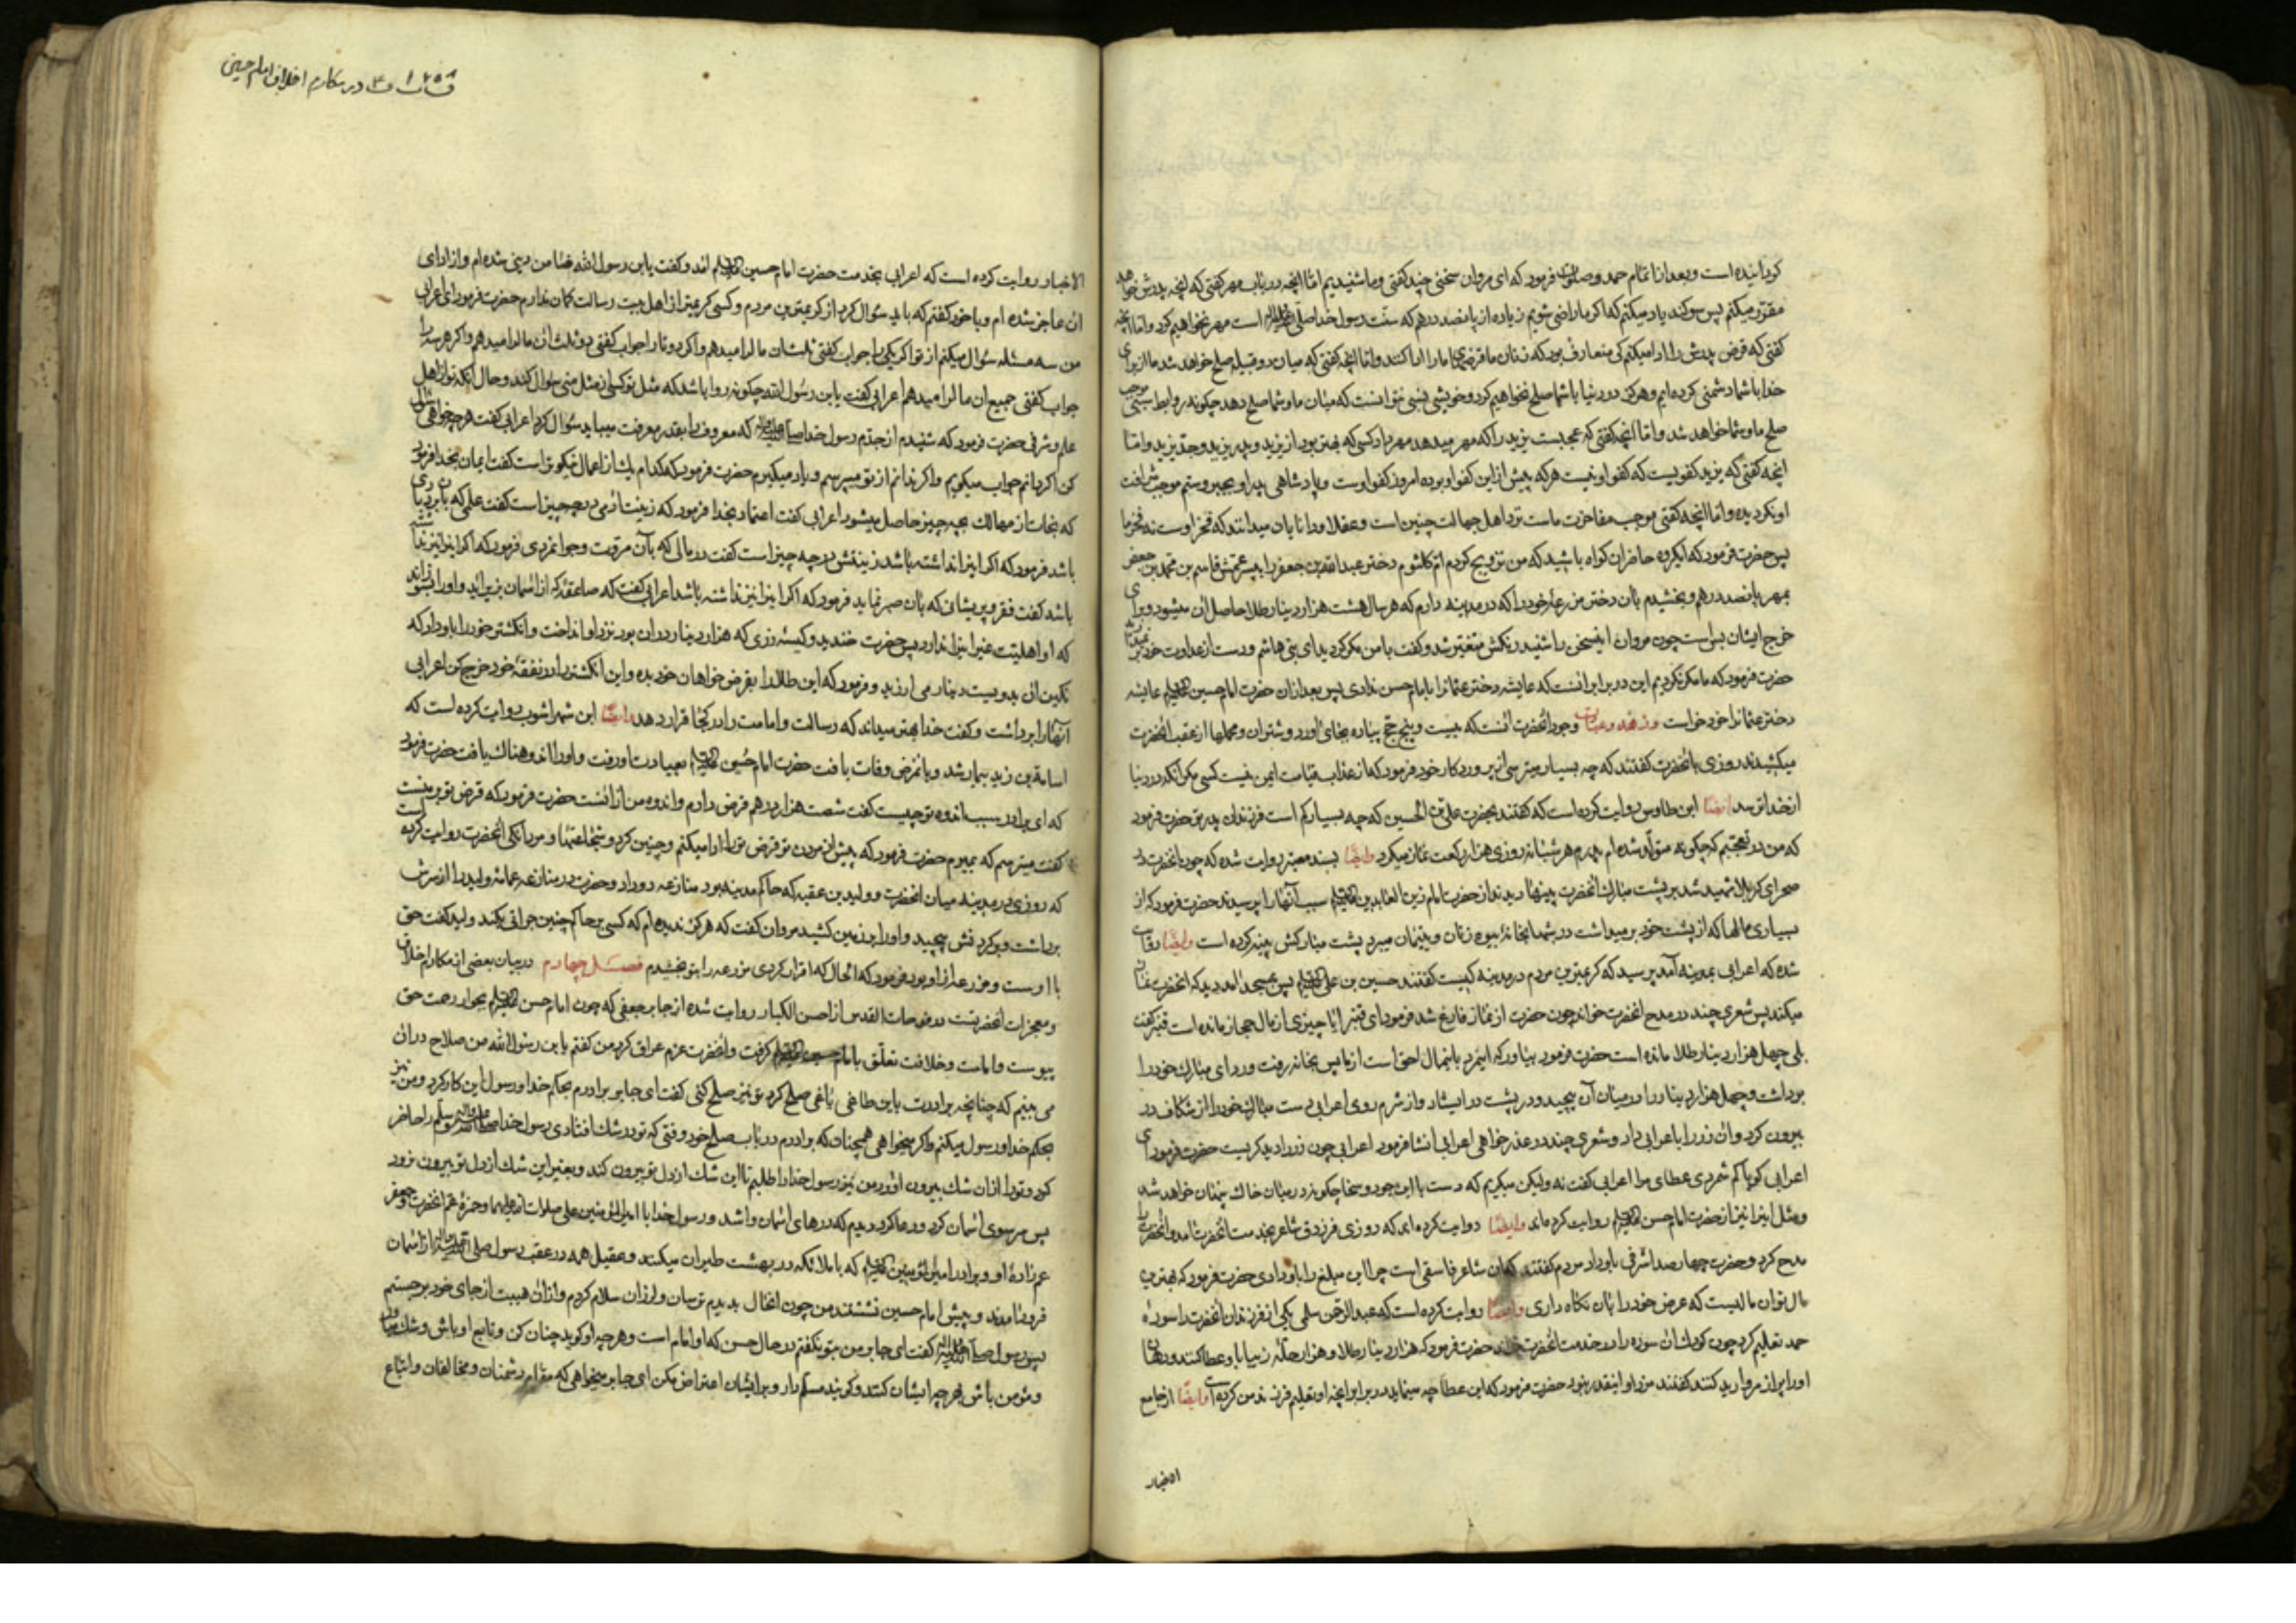 گردانیده است و بعد از اتمام حمد و صلوات فرمود که ای مروان سخنی چند گفتی و ما شنیدیم اما انچه در باب مهر گفتی که انچه پدرش خواهد
مقرر میکنم پس سوکند یاد میکنم که اکر ما راضی شویم زیاده از پانصد درهم که سنت رسول خدا صلی الله علیه و آله است مهر نخواهیم کرد و اما انچه
گفتی که قرض پدرش را ادا میکنم کی متعارف بود که زنان ما قرضهای ما را ادا کنند و اما انچه گفتی که میان دو قبیله صلح خواهد شد ما از برای
خدا با شما دشمنی کرده ایم و هرکز در دنیا با شما صلح نخواهیم کرد و خویشی نسبی نتوانست که میان ما و شما صلح دهد چکونه روابط سببی موجب
صلح ما و شما خواهد شد و اما انچه گفتی که عجبست یزید را که مهر میدهد مهر داد کسی که بهتر بود از یزید و پدر یزید و جد یزید و اما
انچه گفتی که یزید کفویست که کفو او نیست هرکه پیش از این کفو او بوده امروز کفو اوست و پادشاهی پدر او بجبر و ستم موجب شرافت
او نکردیده و اما انچه گفتی موجب مفاخرت ماست نزد اهل جهالت چنین است و عقلا و دانایان میدانند که فخر اوست نه فخر ما
پس حضرت فرمود که ایکروه حاضران کواه باشید که من تزویج کردم ام کلثوم دختر عبدالله بن جعفر را به پسر عمش قاسم بن محمد بن جعفر
بمهر پانصد درهم و بخشیدم بآن دختر مزرعه خود را که در مدینه دارم که هر سال هشت هزار دینار طلا حاصل آن میشود و برای
خرج ایشان بس است چون مروان اینسخن را شنید رنکش متغیر شد و گفت با من مکر کردید ای بنی هاشم و دست از عداوت خود بر نمیدارید
حضرت فرمود که ما مکر نکردیم این در برابر انست که عایشه دختر عثمانرا بامام حسن ندادی پس بعد ازان حضرت امام حسین علیه السلام عایشه
دختر عثمانرا خود خواست و زهد و عبادت وجود انحضرت انست که بیست و پنج حج پیاده بجای آورد و شتران و محملها از عقب انحضرت
میکشیدند روزی بانحضرت گفتند که چه بسیار میترسی از پروردکار خود فرمود که از عذاب قیامت ایمن نیست کسی مکر آنکه در دنیا
از خدا ترسد ایضا ابن طاوس روایت کرده است که گفتند بحضرت علی بن الحسین که چه بسیار کم است فرزندان پدر تو حضرت فرمود
که من در تعجبم که چکونه متولد شده ام پدرم هر شبانه روزی هزار رکعت نماز میکرد وایضا بسند معتبر روایت شده که چون انحضرت در
صحرای کربلا شهید شد بر پشت مبارک انحضرت پینها دیدند از حضرت امام زین العابدین علیه السلام سبب آنها را پرسیدند حضرت فرمود که از
بسیاری مالها که از پشت خود بر میداشت در شبها بخانهٔ بیوه زنان و یتیمان میبرد پشت مبارکش پینه کرده است وایضا روایت
شده که اعرابی بمدینه آمد پرسید که کریمترین مردم در مدینه کیست گفتند حسین بن علی علیه السلام پس بمسجد امد دید که انحضرت نماز
میکند پس شعری چند در مدح انحضرت خواند چون حضرت از نماز فارغ شد فرمود ای قنبر ایا چیزی از مال حجاز مانده است قنبر گفت
بلی چهل هزار دینار طلا مانده است حضرت فرمود بیاور که اینمرد باینمال احق است از ما پس بخانه رفت و ردای مبارک خود را
برداشت و چهل هزار دینار را در میان آن پیچید و در پشت در ایستاد و از شرم روی اعرابی دست مبارک خود را از شکاف در
بیرون کرد و ان زر را باعرابی داد و شعری چند در عذر خواهی اعرابی انشا فرمود اعرابی چون زر را دید کریست حضرت فرمود ای
اعرابی کویا کم شمردی عطای مرا اعرابی گفت نه ولیکن میکریم که دست با این جود و سخا چکونه در میان خاک پنهان خواهد شد
و مثل اینرا نیز از حضرت امام حسن علیه السلام روایت کرده اند وایضا روایت کرده اند که روزی فرزدق شاعر بخدمت انحضرت امد و انحضرت را
مدح کرد و حضرت چهار صد اشرفی باو داد مردم گفتند که ان شاعر فاسقی است چرا این مبلغ را باو دادی حضرت فرمود که بهترین
مال تو ان مالیست که عرض خود را بان نکاه داری وایضا روایت کرده است که عبدالرحمن سلمی یکی از فرزندان انحضرت را سوره
حمد تعلیم کرد چون کودک ان سوره را در خدمت انحضرت خواند حضرت فرمود که هزار دینار طلا و هزار حله زیبا باو عطا کنند و دهان
او را پر از مروارید کنند گفتند مزد او اینقدر نبود حضرت فرمود که این عطا چه مینماید در برابر انچه او تعلیم فرزند من کرده است وایضا از جامع
الاخبار
در مکارم اخلاق امام حسین
الاخبار روایت کرده است که اعرابی بخدمت حضرت امام حسین علیه السلام امد و گفت یابن رسول الله ضامن دینی شده ام و از ادای
ان عاجز شده ام و با خود گفتم که باید سؤال کرد از کریمترین مردم و کسی کریمتر از اهل بیت رسالت کمان ندارم حضرت فرمود ای اعرابی
من سه مسئله سؤال میکنم از تو اکر یکی را جواب گفتی ثلث ان مال را میدهم و اکر دو تا را جواب گفتی دو ثلث ان مال را میدهم و اکر هر سه را
جواب گفتی جمیع ان مال را میدهم اعرابی گفت یابن رسول الله چکونه روا باشد که مثل تو کسی از مثل منی سؤال کند و حال آنکه تو از اهل
علم و شرفی حضرت فرمود که شنیدم از جدم رسول خدا صلی الله علیه و آله که معروف را بقدر معرفت میباید سؤال کرد اعرابی گفت هر چه خواهی سؤال
کن اکر دانم جواب میکویم و اکر ندانم از تو میپرسم و یاد میکیرم حضرت فرمود که کدام یک از اعمال نیکوتر است گفت ایمان بخدا فرمود
که نجات از مهالک بچه چیز حاصل میشود اعرابی گفت اعتماد بخدا فرمود که زینت ادمی در چه چیز است گفت علمی که با بردباری
باشد فرمود که اکر اینرا نداشته باشد زینتش در چه چیز است گفت در مالی که بآن مروت و جوانمردی فرمود که اکر اینرا نیز نداشته
باشد گفت فقر و پریشانی که بان صبر نماید فرمود که اکر اینرا نیز نداشته باشد اعرابی گفت که صاعقهٔ که از اسمان بزیر اید و او را بسوزاند
که او اهلیت غیر اینرا ندارد پس حضرت خندید و کیسهٔ زری که هزار دینار در ان بود نزد او انداخت و انکشتر خود را باو داد که
نکین ان بدویست دینار می ارزید و فرمود که این طلا را بقرض خواهان خود بده و این انکشتر را در نفقهٔ خود خرج کن اعرابی
آنها را برداشت و گفت خدا بهتر میداند که رسالت و امامت را در کجا قرار دهد وایضا ابن شهراشوب روایت کرده است که
اسامة بن زید بیمار شد و بانمرض وفات یافت حضرت امام حسین علیه السلام بعیادت او رفت و او را اندوهناک یافت حضرت فرمود
که ای برادر سبب اندوه تو چیست گفت شصت هزار درهم قرض دارم و اندوه من از انست حضرت فرمود که قرض تو بر منست
گفت میترسم که بمیرم حضرت فرمود که پیش از مردن تو قرض تو را ادا میکنم و چنین کرد و شجاعت و مردانکی انحضرت روایت کرده است
که روزی در مدینه میان انحضرت و ولید بن عقبه که حاکم مدینه بود منازعه رو داد و حضرت در منازعه عمامهٔ ولید را از سرش
برداشت و بر کردنش پیچید و او را بر زمین کشید مروان گفت که هرکز ندیده ام که کسی بر حاکم چنین جراتی بکند ولید گفت حق
با اوست و مزرعه از او بود فرمود که الحال که اقرار کردی مزرعه را بتو بخشیدم فصل چهارم در بیان بعضی از مکارم اخلاق
و معجزات انحضرتست در فوحات القدس از احسن الکبار روایت شده از جابر جعفی که چون امام حسن علیه السلام بجوار رحمت حق
پیوست و امامت و خلافت تعلق بامام حسین علیه السلام کرفت و انحضرت عزم عراق کرد من گفتم یابن رسول الله من صلاح در ان
می بینم که چنانچه برادرت باین طاغی یاغی صلح کرد تو نیز صلح کنی گفت ای جابر برادرم بحکم خدا و رسول این کار کرد و من نیز
بحکم خدا و رسول میکنم و اکر میخواهی همچنان که برادرم در باب صلح خود وقتی که تو در شک افتادی رسول خدا صلی الله علیه و آله و سلم را حاضر
کرد و تو را از ان شک بیرون اورد من نیز رسول خدا را طلبم تا این شک از دل تو بیرون کند و بغیر این شک از دل تو بیرون نرود
پس سر سوی اسمان کرد و دعا کرد دیدم که درهای اسمان وا شد و رسول خدا با امیرالمؤمنین علی صلوات الله علیهما و حمزه عم انحضرت و جعفر
عم زادهٔ او و برادر امیرالمؤمنین علیه السلام که با ملائکه در بهشت طیران میکند و عقیل همه در عقب رسول صلی الله علیه و آله از اسمان
فرود امدند و پیش امام حسین نشستند من چون انحال بدیدم ترسان و لرزان سلام کردم و از ان هیبت از جای خود برجستم
پس رسول صلی الله علیه و آله گفت ای جابر من بتو نکفتم در حال حسن که او امام است و هر چه او کوید چنان کن و تابع او باش و شک میاور
و مؤمن باش هر چه ایشان کنند و کویند مسلم دار و بر ایشان اعتراض مکن ای جابر میخواهی که مقام دشمنان و مخالفان و اتباع